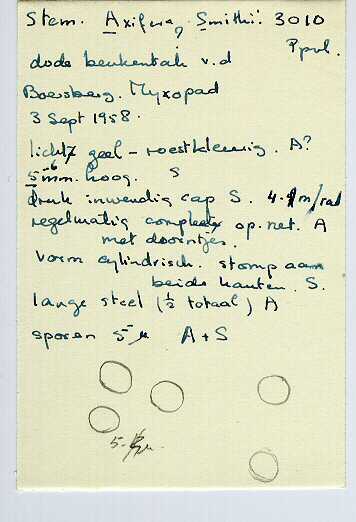 Stem. Axifera, Smithii: 3010
dode beukentak v.d
Boersberg. Myxopad
3 Sept 1958.
licht geel - roestkleurig. A?
5-6 mm. hoog. S
druk inwendig cap S. 4.
regelmatig compleet op. net. A
met doorntjes.
vorm cylindrisch. stomp aan
beide kanten. S.
lange steel (½ totaal) A
sporen 5 µ A+S
5- µ.